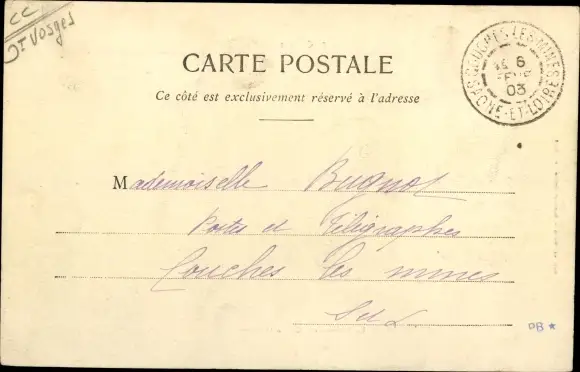 CC
Vosges
CARTE POSTALE
Ce côté est exclusivement réservé à l'adresse
COUCHES-LES-MINES
6
03
SAONE-ET-LOIRE
Mademoiselle Bugnot
Postes et Télégraphes
Couches les mines
PB *